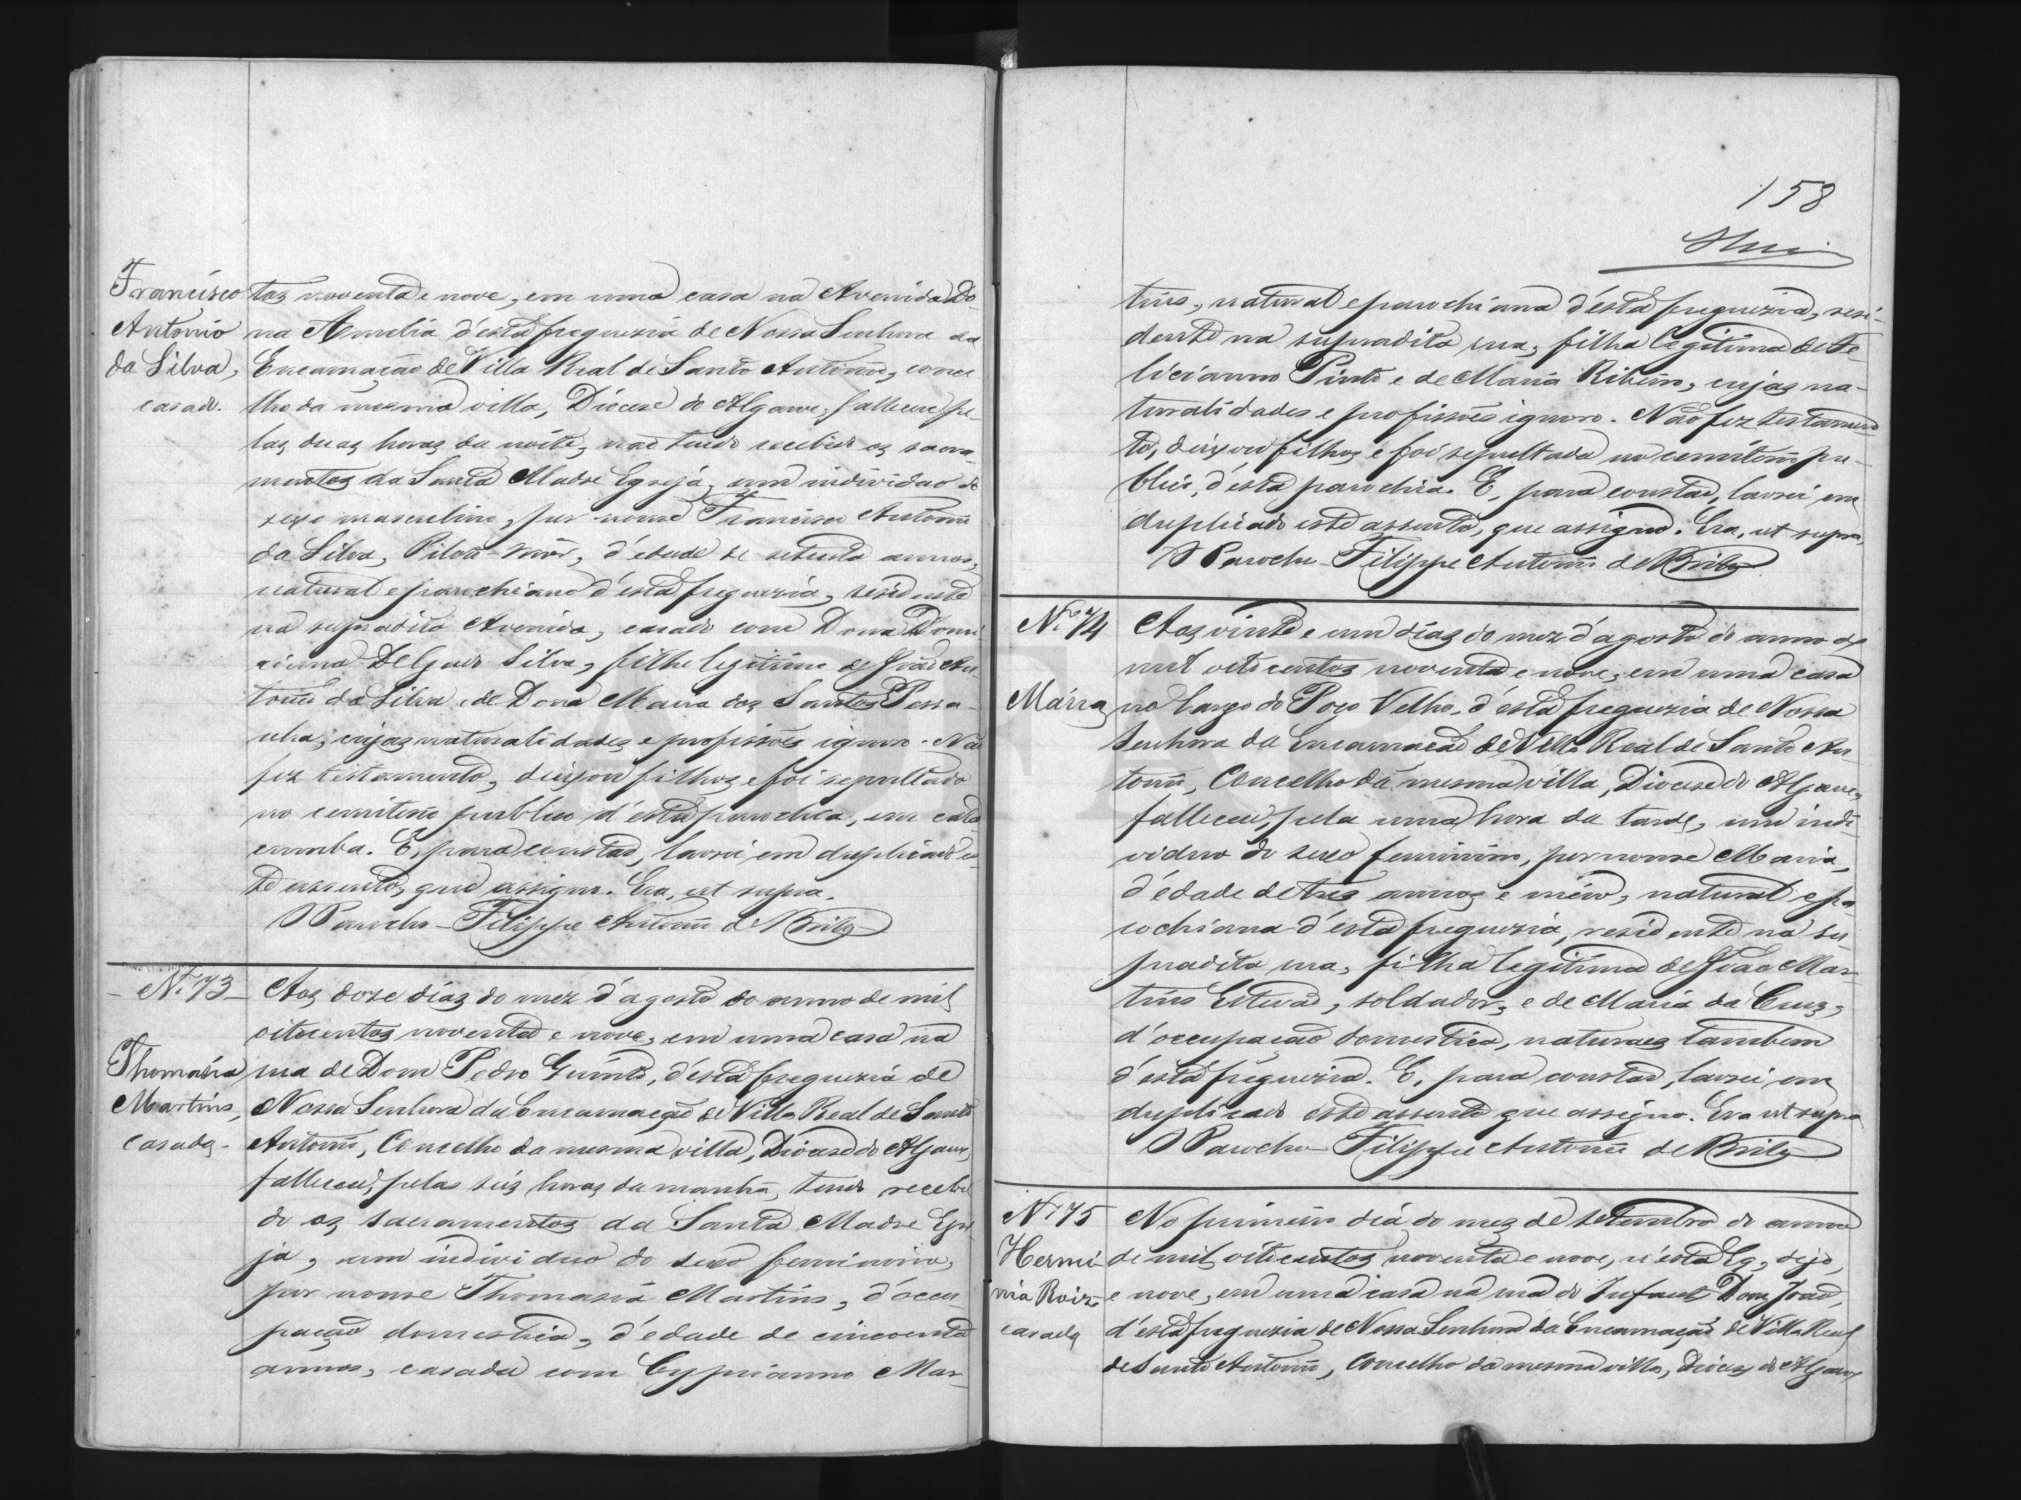 Francisco
Antonio
da Silva,
casado.
tos noventa e nove, em uma casa na Avenida Do-
na Amelia d'esta freguezia de Nossa Senhora da
Encarnação de Villa Real de Santo Antonio, conce-
lho da mesma villa, Diocese do Algarve, falleceu pe-
las duas horas da noite, não tendo recebido os sacra-
mentos da Santa Madre Egreja, um individuo do
sexo masculino, por nome Francisco Antonio
da Silva, Piloto-mór, d'edade de setenta annos,
natural e parochiano d'esta freguezia, residente
na supradita Avenida, casado com Dona
Silva, filho legitimo de João An-
tonio da Silva e de Dona Maria dos Santos Pessa-
nha, cujas naturalidades e profissões ignoro. Não
fez testamento, deixou filhos e foi sepultado
no cemiterio publico d'esta parochia, em cata-
cumba. E, para constar, lavrei em duplicado es-
te assento, que assigno. Era, ut supra.
O Parocho - Filippe Antonio de Brito
N.º 73
Thomasia
Martins,
casada.
Aos doze dias do mez d'agosto do anno de mil
oitocentos noventa e nove, em uma casa na
rua de Dom Pedro Quinto, d'esta freguezia de
Nossa Senhora da Encarnação de Villa Real de Santo
Antonio, Concelho da mesma villa, Diocese do Algarve,
falleceu, pelas seis horas da manhã, tendo recebi-
do os sacramentos da Santa Madre Egre-
ja, um individuo do sexo feminino,
por nome Thomasia Martins, d'occu-
pação domestica, d'edade de cincoenta
annos, casada com Cyprianno Mar-
158
tins, natural e parochiana d'esta freguezia, resi-
dente na supradita rua, filha legitima de Fe-
licianno Pinto e de Maria Ribeiro, cujas na-
turalidades e profissões ignoro. Não fez testamen-
to, deixou filhos e foi sepultada no cemiterio pu-
blico, d'esta parochia. E, para constar, lavrei em
duplicado este assento, que assigno. Era, ut supra,
O Parocho - Filippe Antonio de Brito
N.º 74
Maria
Aos vinte e um dias do mez d'agosto do anno de
mil oitocentos noventa e nove, em uma casa
no largo do Poço Velho, d'esta freguezia de Nossa
Senhora da Encarnação de Villa Real de Santo An-
tonio, Concelho da mesma villa, Diocese do Algarve,
falleceu, pela uma hora da tarde, um indi-
viduo do sexo feminino, por nome Maria,
d'edade de tres annos e meio, natural e pa-
rochiana d'esta freguezia, residente na su-
pradita rua, filha legitima de João Mar-
tins Estevão, soldador, e de Maria da Cruz,
d'occupação domestica, naturaes tambem
d'esta freguezia. E, para constar, lavrei em
duplicado este assento que assigno. Era ut supra
O Parocho - Filippe Antonio de Brito
N.º 75
Hermi-
nia Roiz
casada
No primeiro dia do mez de setembro do anno
de mil oitocentos noventa e nove, n'esta Eg, digo,
e nove, em uma casa na rua do Infante Dom João,
d'esta freguezia de Nossa Senhora da Encarnação de Villa Real
de Santo Antonio, Concelho da mesma villa, Diocese do Algarve